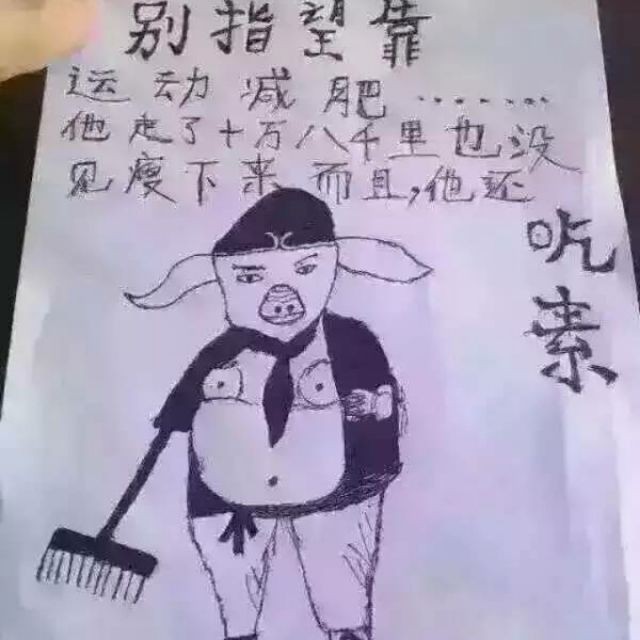 别指望靠
运动减肥········
他走了十万八千里也没
见瘦下来而且,他还
吃素